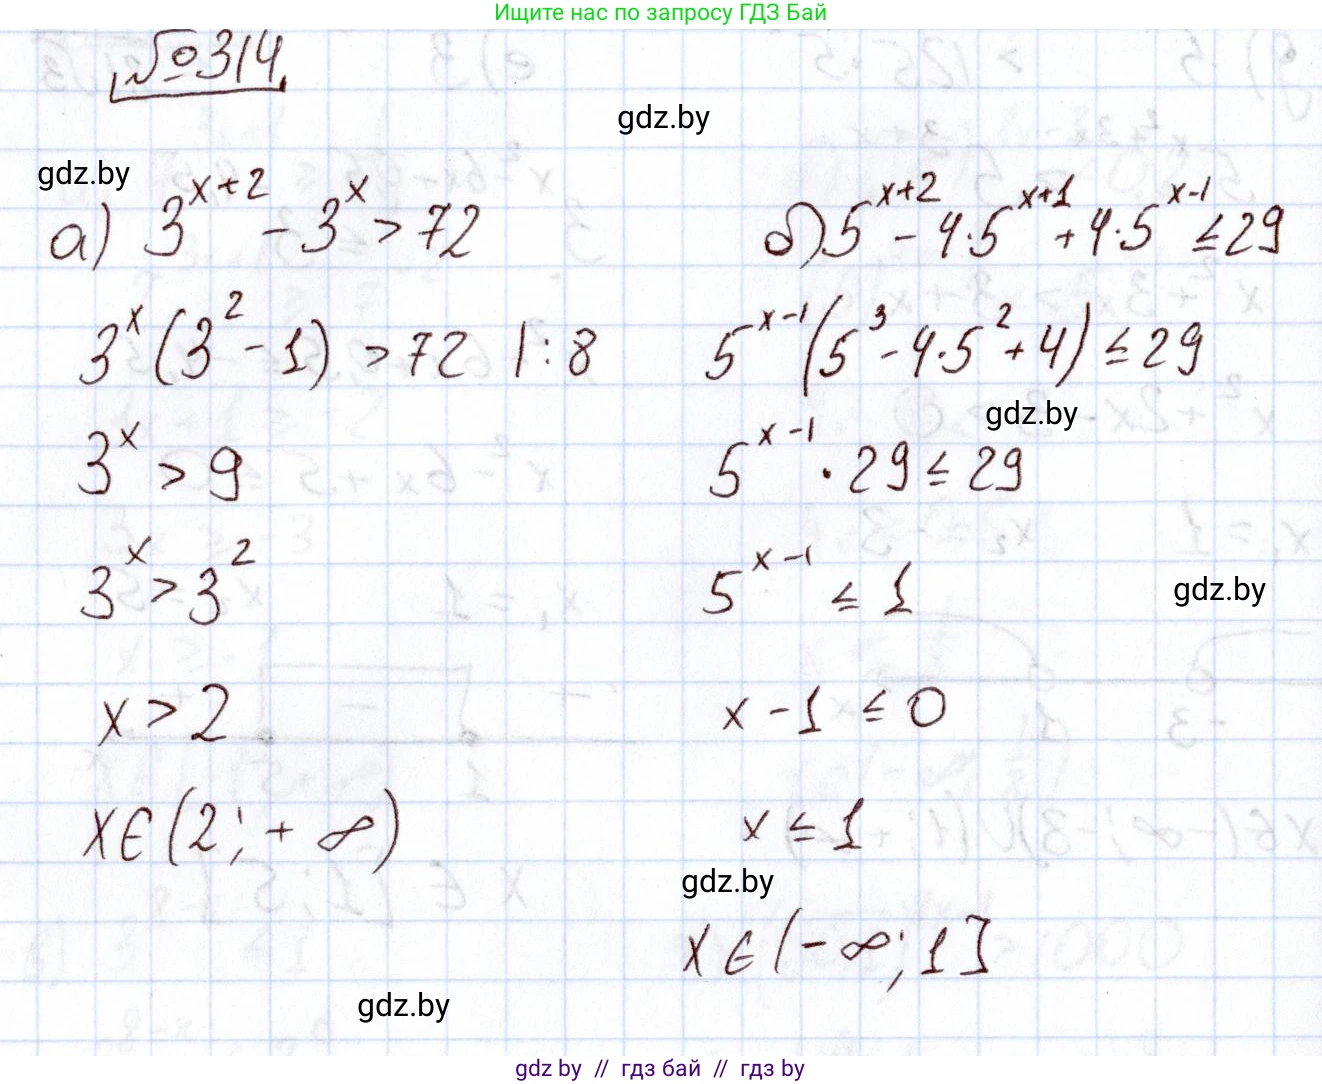 Ищите нас по запросу ГДЗ Бай
№314
gdz.by
gdz.by
а) 3^(x+2) - 3^x > 72
3^x (3^2 - 1) > 72 | : 8
3^x > 9
3^x > 3^2
x > 2
x ∈ (2; + ∞)
б) 5^(x+2) - 4·5^(x+1) + 4·5^(x-1) ≤ 29
5^(x-1) (5^3 - 4·5^2 + 4) ≤ 29
gdz.by
5^(x-1) · 29 ≤ 29
5^(x-1) ≤ 1
gdz.by
x - 1 ≤ 0
x ≤ 1
gdz.by
x ∈ (-∞; 1]
gdz.by
gdz by // гдз бай // гдз by